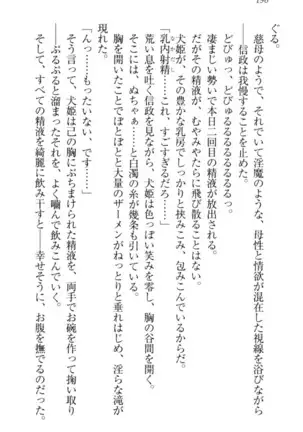 190
ぐる。
慈母のようで、それでいて淫魔のような、母性と情欲が混在した視線を浴びながら
――信政は我慢することを止めた。
どびゅっ、どびゅるるるるるるるるっ。
凄まじい勢いで本日二回目の精液が放出される。
だがその精液が、むやみやたらに飛び散ることはない。
犬姫が、その豊かな乳房でしっかりと挟みこみ、包みこんでいるからだ。
「乳内射精……これ、すごすぎるだろ……」
荒い息を吐く信政を見ながら、犬姫は色っぽい笑みを零し、胸の谷間を開く。
そこには、ぬちゃぁ……と白濁の糸が幾条も引いている。
胸を開いたことでぼとぼとと大量のザーメンがねっとりと垂れはじめ、淫らな滝が
現れた。
「んっ……もったいない、です……」
そう言って、犬姫は己の胸にぶちまけられた精液を、両手でお椀を作って掬い取り
――ぷるぷると溜まったそれを、よく嚙んで飲みこんでいく。
そして、すべての精液を綺麗に飲み干すと――幸せそうに、お腹を撫でるのだった。